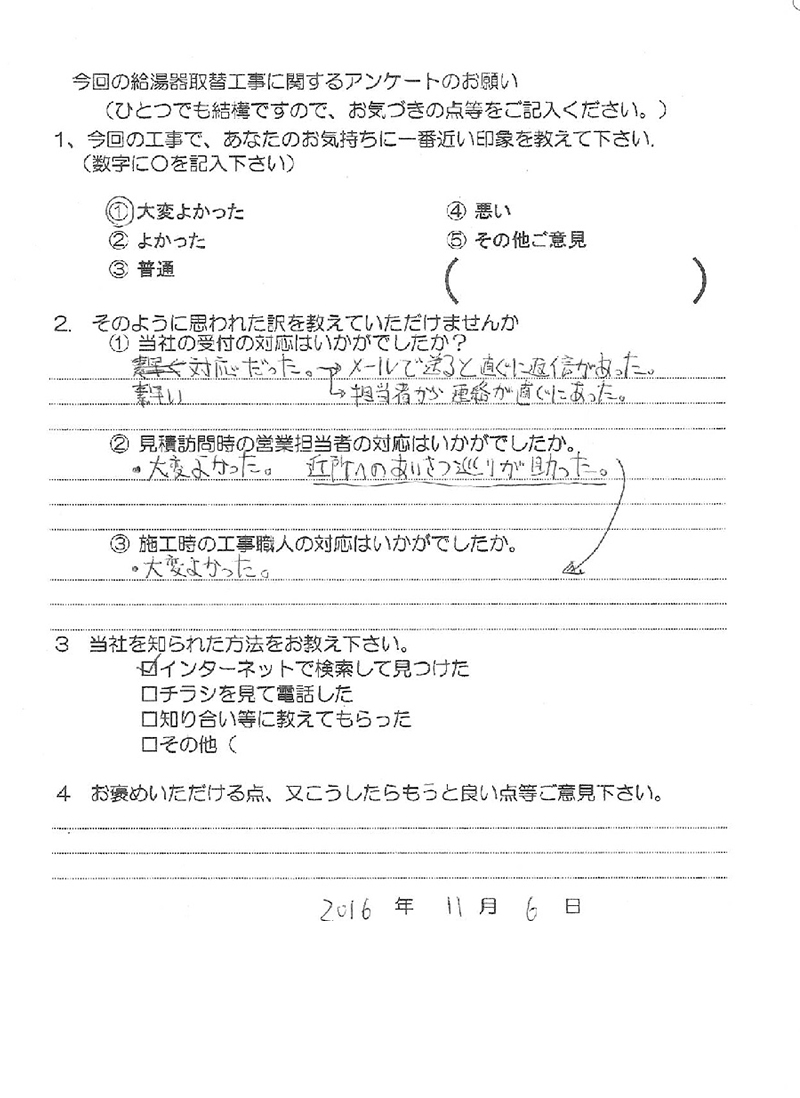 今回の給湯器取替工事に関するアンケートのお願い
(ひとつでも結構ですので、お気づきの点等をご記入ください。)
1、今回の工事で、あなたのお気持ちに一番近い印象を教えて下さい.
(数字に〇を記入下さい)
① 大変よかった ④ 悪い
② よかった ⑤ その他ご意見
③ 普通 ( )
2. そのように思われた訳を教えていただけませんか
① 当社の受付の対応はいかがでしたか?
対応だった。→メールで送ると直ぐに返信があった。
素早い →担当者から連絡が直ぐにあった。
② 見積訪問時の営業担当者の対応はいかがでしたか。
・大変よかった。 近所へのあいさつ巡りが助った。
③ 施工時の工事職人の対応はいかがでしたか。
・大変よかった。
3 当社を知られた方法をお教え下さい。
☑インターネットで検索して見つけた
□チラシを見て電話した
□知り合い等に教えてもらった
□その他(
4 お褒めいただける点、又こうしたらもっと良い点等ご意見下さい。
2016 年 11 月 6 日